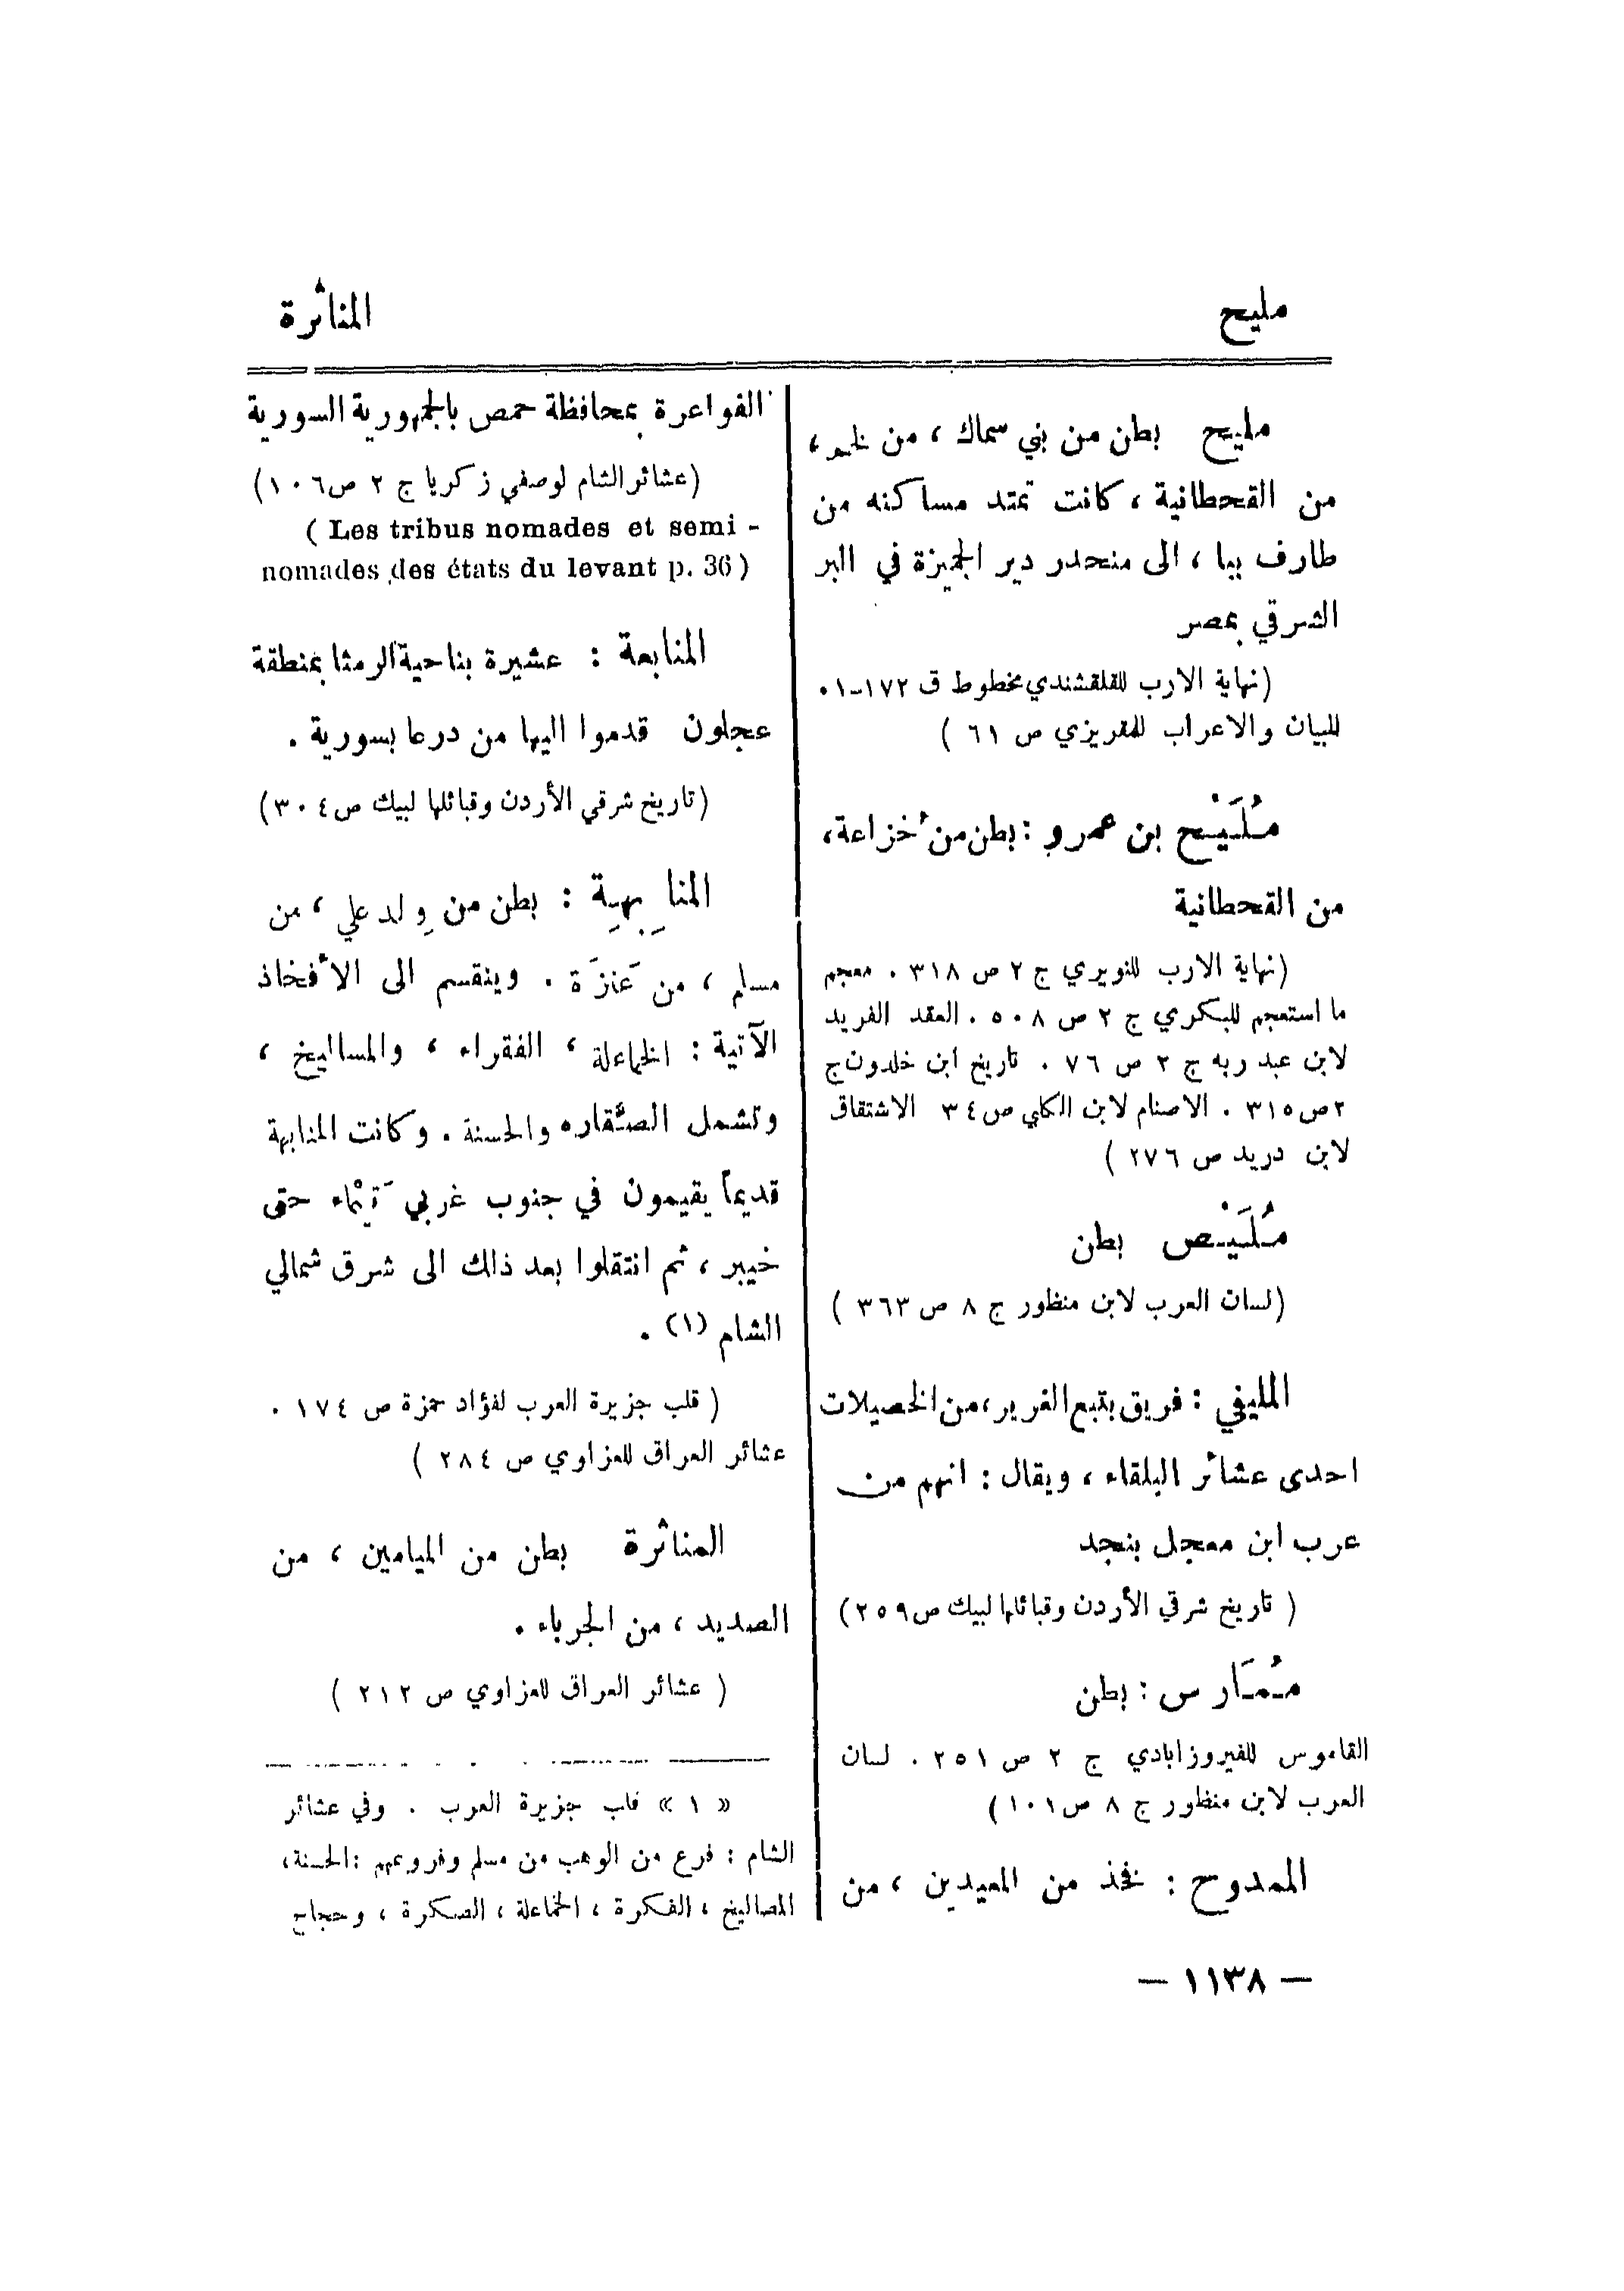 مليح
المناثرة
مليح بطن من بني سماك ، من لخم ،
من القحطانية ، كانت تمتد مساكنه من
طارف ببا ، الى منحدر دير الجميزة في البر
الشرقي بمصر
(نهاية الارب للقلقشندي مخطوط ق ١٧٢-٠١
للبيان والاعراب للمقريزي ص ٦١ )
مُلَيْح بن عمرو : بطن من خُزاعة،
من القحطانية
(نهاية الارب للنويري ج ٢ ص ٣١٨ . معجم
ما استعجم للبكري ج ٢ ص ٥٠٨ . العقد الفريد
لابن عبد ربه ج ٢ ص ٧٦ . تاريخ ابن خلدون ج
٢ ص ٣١٥ . الاصنام لابن الكلبي ص ٣٤ الاشتقاق
لابن دريد ص ٢٧٦ )
مُلَيْص بطن
(لسان العرب لابن منظور ج ٨ ص ٣٦٣ )
المليفي : فريق يتبع الغرير، من الخصيلات
احدى عشائر البلقاء ، ويقال : انهم من
عرب ابن معجل بنجد
( تاريخ شرقي الأردن وقبائلها لبيك ص ٢٥٩)
مُمَارس : بطن
القاموس للفيروزابادي ج ٢ ص ٢٥١ . لسان
العرب لابن منظور ج ٨ ص ١٠١)
الممدوح : فخذ من المعيدين ، من
الفواعرة بمحافظة حمص بالجمهورية السورية
(عشائر الشام لوصفي زكريا ج ٢ ص ١٠٦)
( Les tribus nomades et semi -
nomades des états du levant p. 36 )
المنابعة : عشيرة بناحية الرمثا بمنطقة
عجلون قدموا اليها من درعا بسورية .
(تاريخ شرقي الأردن وقبائلها لبيك ص ٣٠٤)
المنابِهِة : بطن من وِلد علي ، من
مسلم ، من عَنزَة . وينقسم الى الأفخاذ
الآتية : الخماعلة ، الفقراء ، والمساليخ ،
وتشمل الصقاره والحسنة . وكانت المنابهة
قديماً يقيمون في جنوب غربي تَيْماء حتى
خيبر ، ثم انتقلوا بعد ذلك الى شرق شمالي
الشام (١) .
( قلب جزيرة العرب لفؤاد حمزة ص ١٧٤ .
عشائر العراق للعزاوي ص ٢٨٤ )
المناثرة بطن من الميامين ، من
الصديد ، من الجرباء .
( عشائر العراق للعزاوي ص ٢١٢ )
« ١ » قلب جزيرة العرب . وفي عشائر
الشام : فرع من الوهب من مسلم وفروعهم : الحسنة،
المصاليخ ، الفكرة ، الخماعلة ، الصكرة ، وحجاج
— ١١٣٨ —